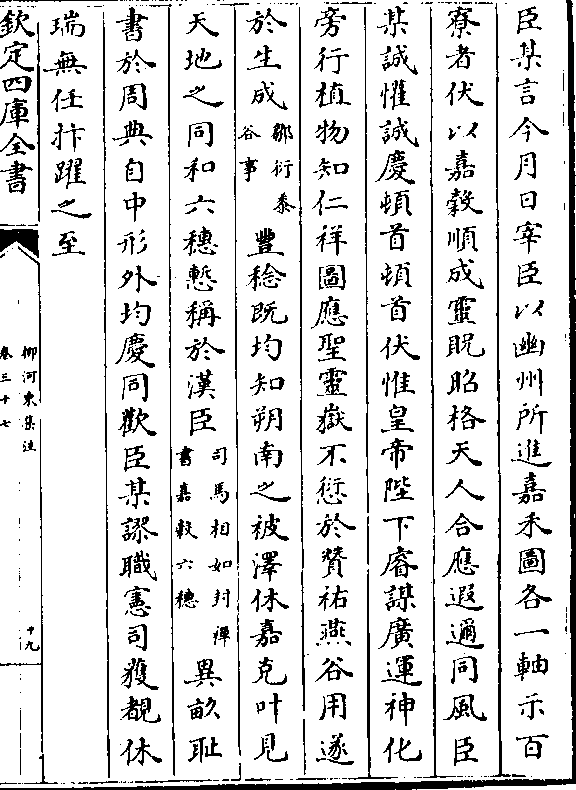 臣某言今月日宰臣以幽州所進嘉禾圖各一軸示百
寮者伏以嘉穀順成靈貺昭格天人合應遐邇同風臣
某誠懽誠慶頓首頓首伏惟皇帝陛下睿謀廣運神化
旁行植物知仁祥圖應聖靈嶽不愆於贊祐燕谷用遂
於生成鄒衍泰谷事豐稔既均知朔南之被澤休嘉克叶見
天地之同和六穗慙稱於漢臣司馬相如封禪書嘉穀六穗異畝耻
書於周典自中形外均慶同歡臣某謬職憲司獲覩休
瑞無任抃躍之至
欽定四庫全書
柳河東集注
卷三十七
十九